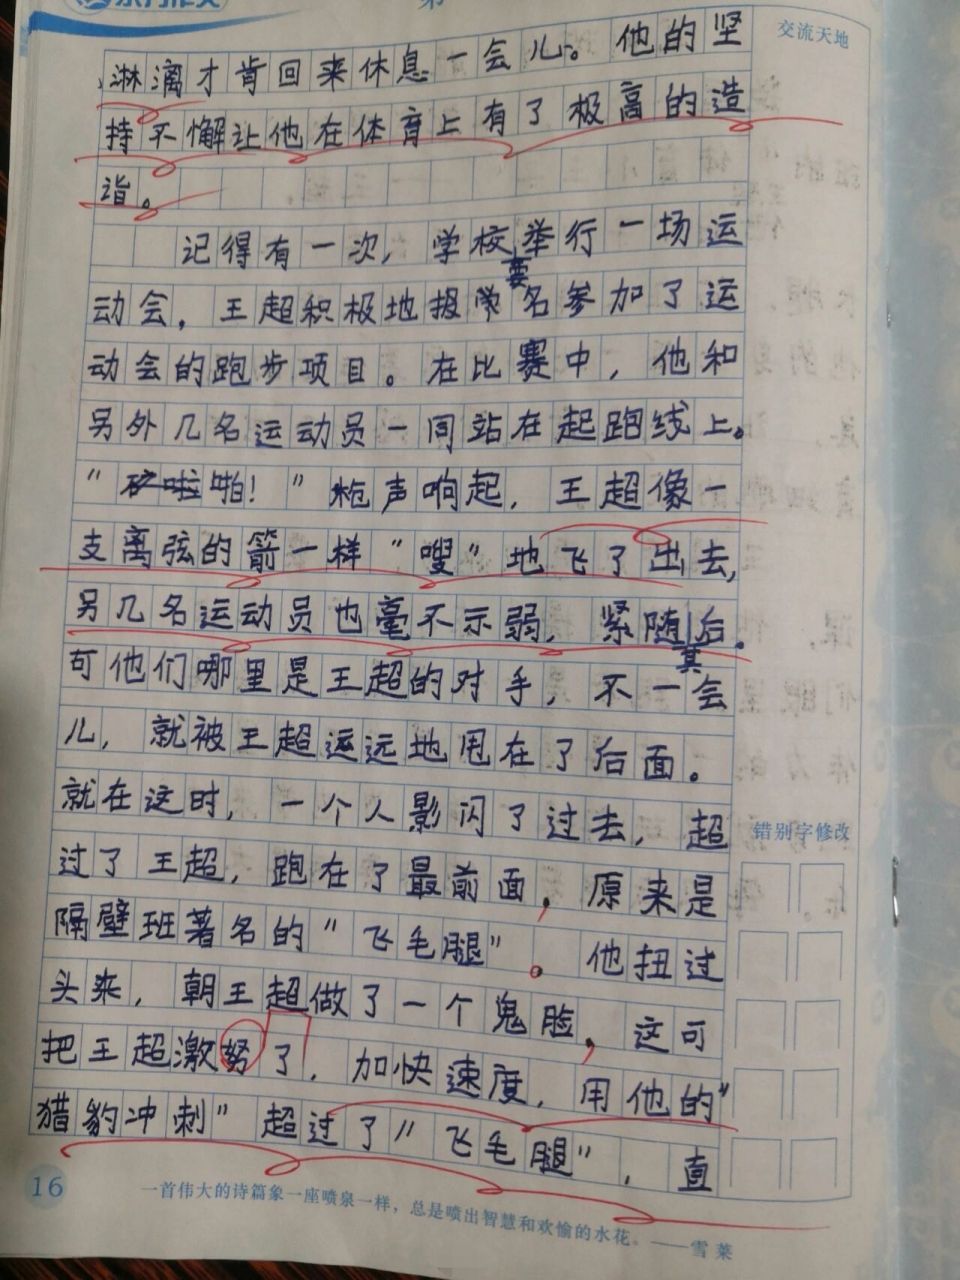 交流天地
淋漓才肯回来休息一会儿。他的坚
持不懈让他在体育上有了极高的造
诣。
记得有一次，学校要举行一场运
动会，王超积极地报名参加了运
动会的跑步项目。在比赛中，他和
另外几名运动员一同站在起跑线上。
“啪！”枪声响起，王超像一
支离弦的箭一样“嗖”地飞了出去，
另几名运动员也毫不示弱，紧随其后．
可他们哪里是王超的对手，不一会
儿，就被王超远远地甩在了后面。
就在这时，一个人影闪了过去，超
过了王超，跑在了最前面，原来是
隔壁班著名的“飞毛腿”。他扭过
头来，朝王超做了一个鬼脸，这可
把王超激努了，加快速度，用他的“
猎豹冲刺”超过了“飞毛腿”，直
错别字修改
16
一首伟大的诗篇象一座喷泉一样，总是喷出智慧和欢愉的水花。——雪莱